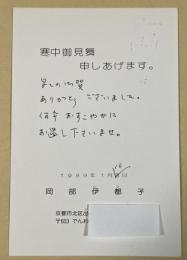 寒中御見舞
申しあげます。
早々の御賀
ありがとう ございました。
何卒 おすこやかに
お過し下さいませ。
1989年1月 日
岡部伊都子
京都市北区出
〒603 でんわ